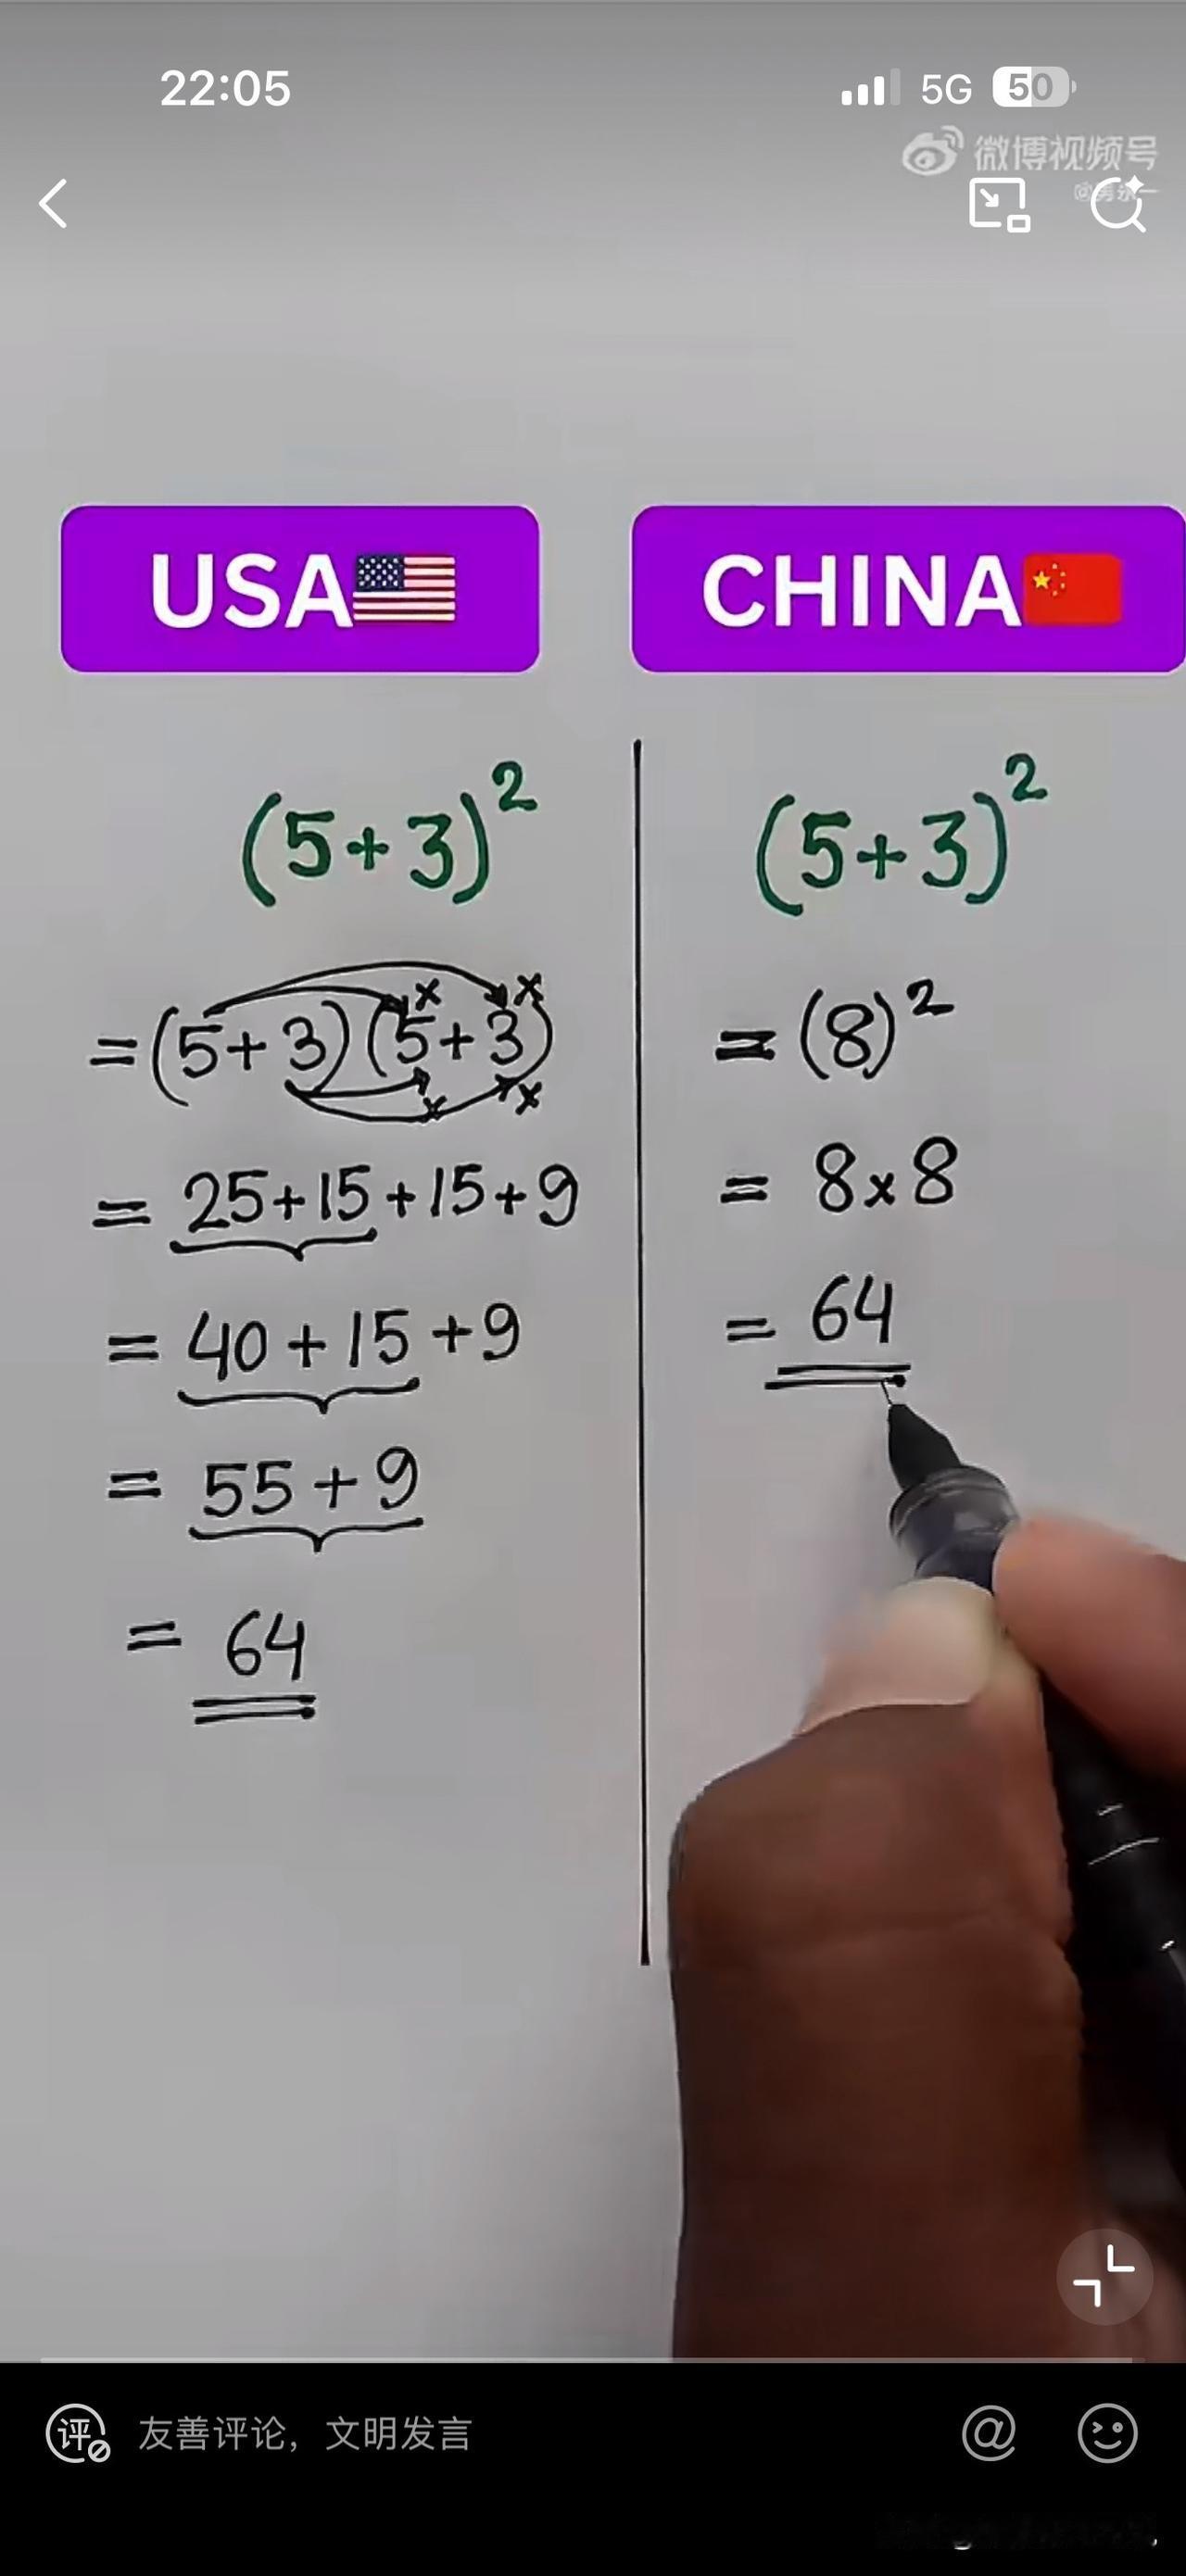 22:05 5G 50
微博视频号
USA
(5+3)²
=(5+3)(5+3)
= 25+15+15+9
= 40+15+9
= 55+9
= 64
CHINA
(5+3)²
=(8)²
= 8×8
= 64
评 友善评论，文明发言 @